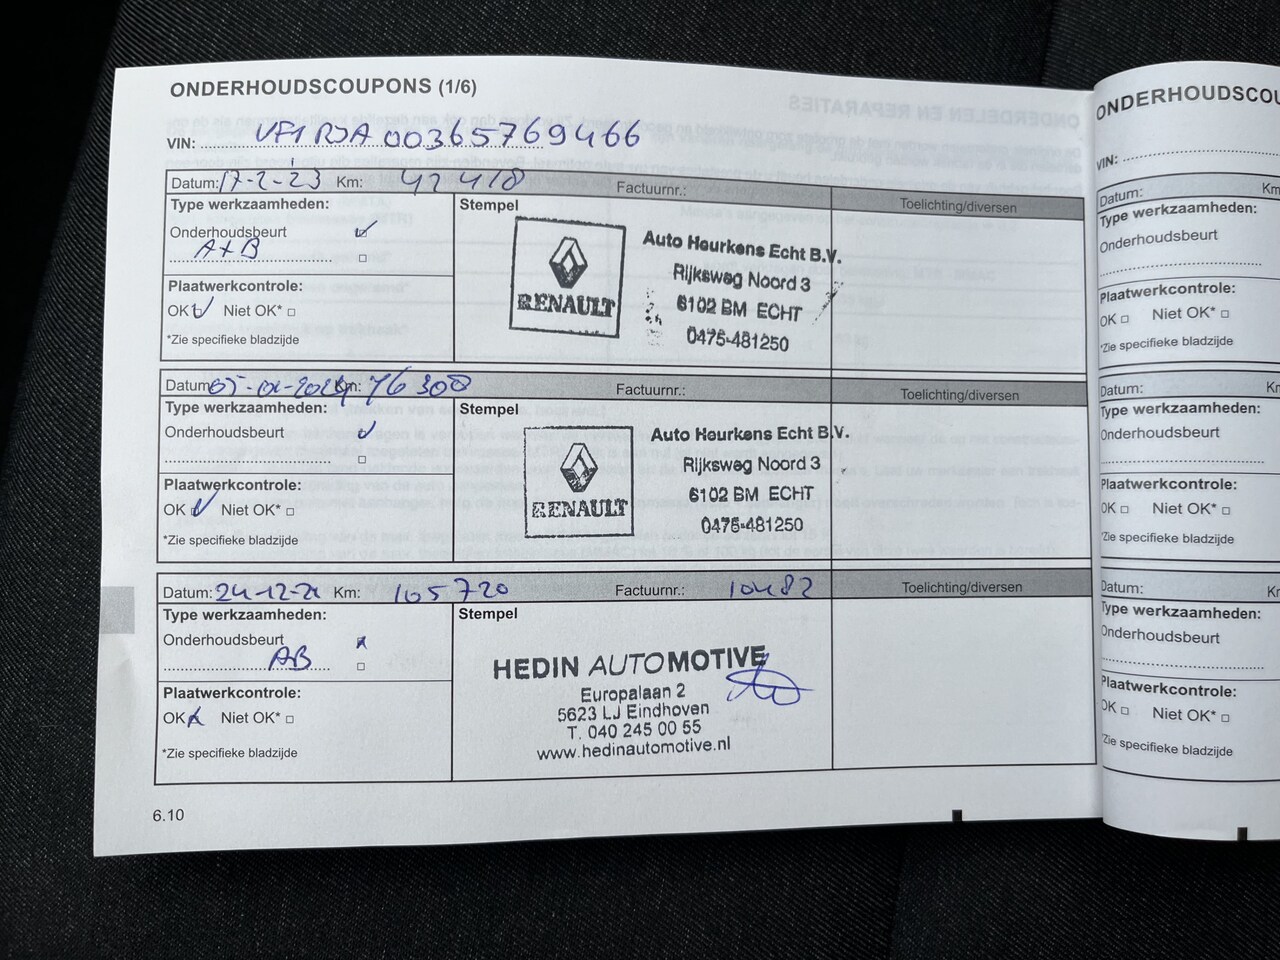 ONDERHOUDSCOUPONS (1/6)
VIN: VF1RJA00365769466
Datum: 17-2-23 Km: 42418 Factuurnr.:
Toelichting/diversen
Type werkzaamheden:
Stempel
Onderhoudsbeurt
A+B
Plaatwerkcontrole:
OK Niet OK*
*Zie specifieke bladzijde
RENAULT
Auto Heurkens Echt B.V.
Rijksweg Noord 3
6102 BM ECHT
0475-481250
Datum: Km: 76300 Factuurnr.:
Toelichting/diversen
Type werkzaamheden:
Stempel
Onderhoudsbeurt
Plaatwerkcontrole:
OK Niet OK*
*Zie specifieke bladzijde
RENAULT
Auto Heurkens Echt B.V.
Rijksweg Noord 3
6102 BM ECHT
0475-481250
Datum: Km: 105720 Factuurnr.: 10482
Toelichting/diversen
Type werkzaamheden:
Stempel
Onderhoudsbeurt
AB
Plaatwerkcontrole:
OK Niet OK*
*Zie specifieke bladzijde
HEDIN AUTOMOTIVE
Europalaan 2
5623 LJ Eindhoven
T. 040 245 00 55
www.hedinautomotive.nl
6.10
ONDERHOUDSCOU
VIN:
Datum: Km
Type werkzaamheden:
Onderhoudsbeurt
Plaatwerkcontrole:
OK Niet OK*
*Zie specifieke bladzijde
Datum: Km
Type werkzaamheden:
Onderhoudsbeurt
Plaatwerkcontrole:
OK Niet OK*
*Zie specifieke bladzijde
Datum: Kr
Type werkzaamheden:
Onderhoudsbeurt
Plaatwerkcontrole:
OK Niet OK*
*Zie specifieke bladzijde